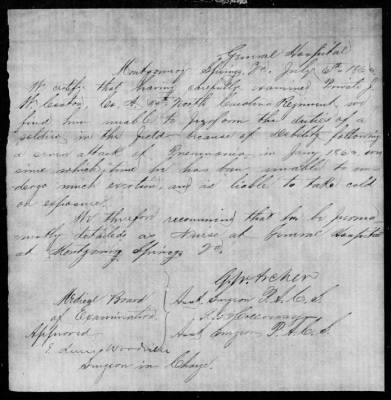 General Hospital
Montgomery Springs, Va. July 6th 186
We certify that having carefully examined Private J.
W. Co. A. North Carolina Regiment, we
find him unable to perform the duties of a
soldier in the field because of debility following
a severe attack of Pneumonia, in Jany 1863,
since which time he has been unable to un-
dergo much exertion, and is liable to take cold
on exposure.
We therefore recommend that he be perma-
nently detailed as Nurse at General Hospital
at Montgomery Springs Va.
G. W. Archer
Medical Board
Asst. Surgeon P.A.C.S.
of Examination
Approved
Asst Surgeon P.A.C.S.
Woodville
Surgeon in Charge